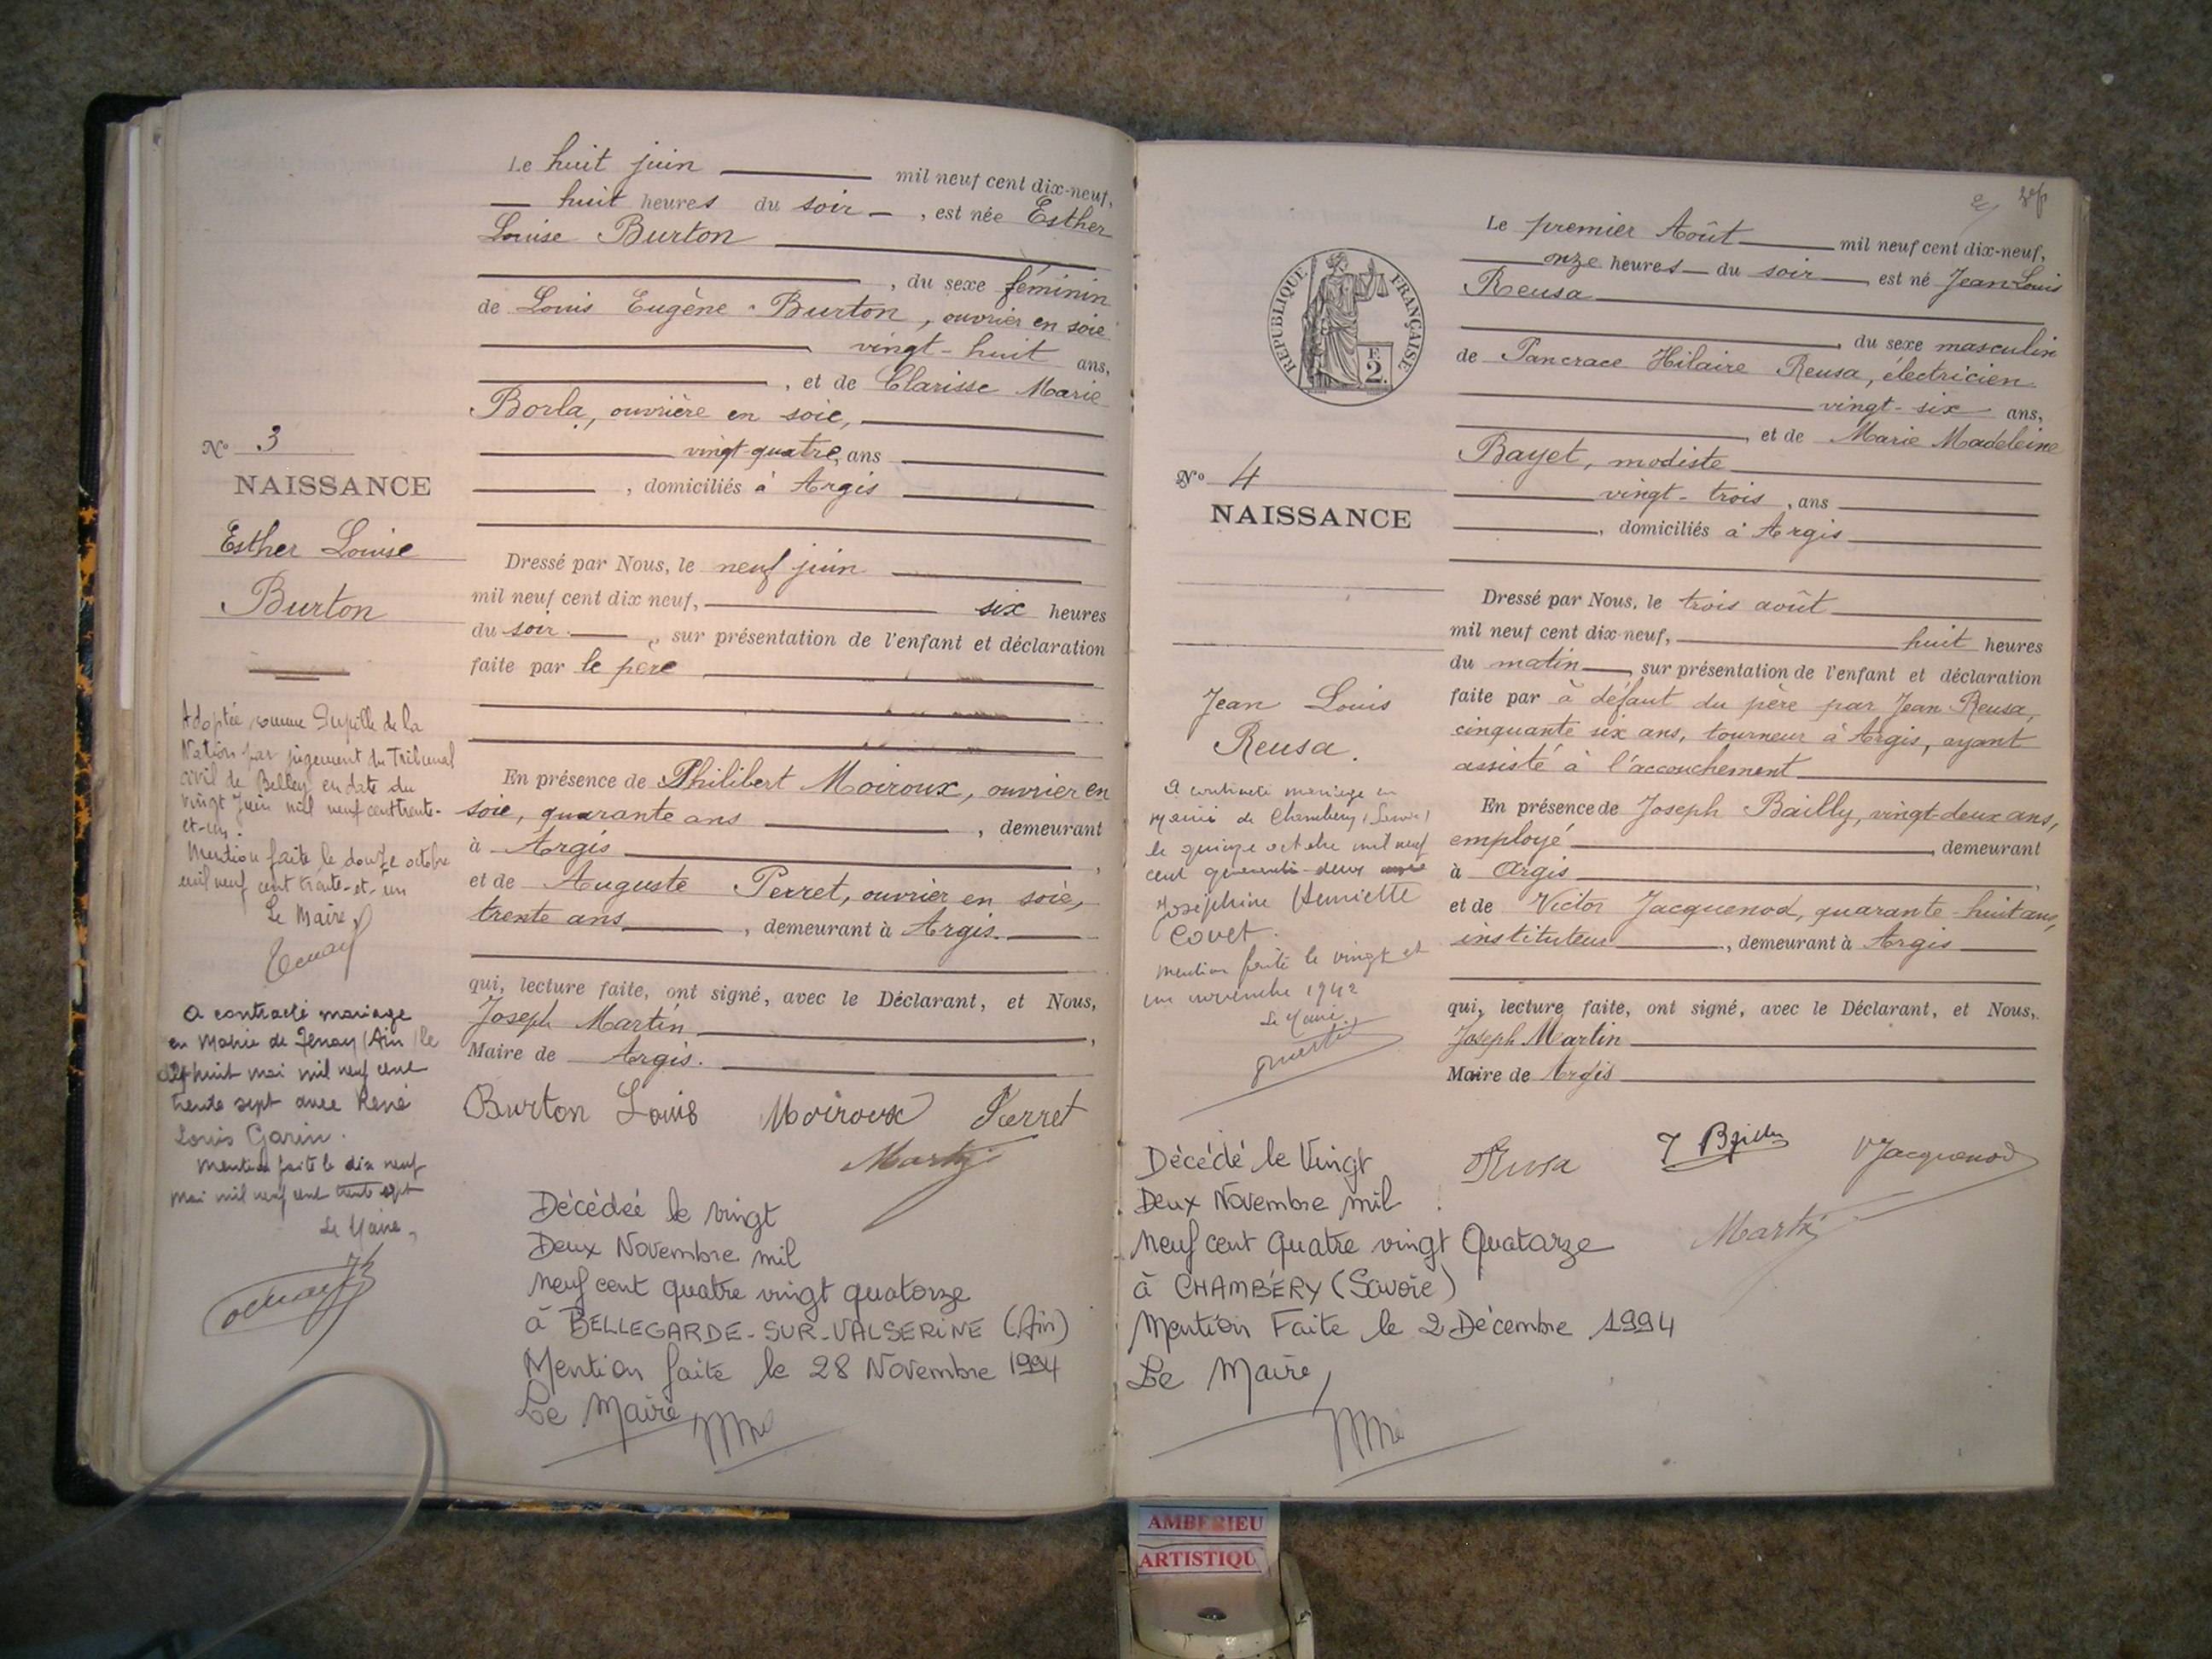 Le huit juin mil neuf cent dix-neuf,
huit heures du soir, est née Esther
Louise Burton
, du sexe féminin
de Louis Eugène Burton, ouvrier en soie
vingt-huit ans,
, et de Clarisse Marie
Borla, ouvrière en soie,
vingt-quatre, ans
, domiciliés à Argis
Nº 3
NAISSANCE
Esther Louise
Burton
Dressé par Nous, le neuf juin
mil neuf cent dix neuf, six heures
du soir, sur présentation de l'enfant et déclaration
faite par le père
En présence de Philibert Moiroux, ouvrier en
soie, quarante ans, demeurant
à Argis,
et de Auguste Perret, ouvrier en soie,
trente ans, demeurant à Argis.
qui, lecture faite, ont signé, avec le Déclarant, et Nous,
Joseph Martin,
Maire de Argis.
Burton Louis Moiroux Perret
Martin
Adoptée comme Pupille de la
Nation par jugement du Tribunal
civil de Belley en date du
vingt Juin mil neuf cent trente-
et-un.
Mention faite le douze octobre
mil neuf cent trente-et-un
Le Maire
A contracté mariage
en Mairie de Tenay (Ain) le
dix huit mai mil neuf cent
trente sept avec René
Louis Garin.
Mention faite le dix neuf
mai mil neuf cent trente sept
Le Maire,
Décédée le vingt
Deux Novembre mil
neuf cent quatre vingt quatorze
à BELLEGARDE-SUR-VALSERINE (Ain)
Mention faite le 28 Novembre 1994
Le Maire
Le premier Août mil neuf cent dix-neuf,
onze heures du soir, est né Jean Louis
Reusa
, du sexe masculin
de Pancrace Hilaire Reusa, électricien
vingt-six ans,
, et de Marie Madeleine
Bayet, modiste
vingt-trois, ans
, domiciliés à Argis
RÉPUBLIQUE FRANÇAISE
F.
2.
Nº 4
NAISSANCE
Jean Louis
Reusa.
Dressé par Nous, le trois août
mil neuf cent dix-neuf, huit heures
du matin, sur présentation de l'enfant et déclaration
faite par à défaut du père par Jean Reusa,
cinquante six ans, tourneur à Argis, ayant
assisté à l'accouchement
En présence de Joseph Bailly, vingt-deux ans,
employé, demeurant
à Argis,
et de Victor Jacquenod, quarante-huit ans,
instituteur, demeurant à Argis
qui, lecture faite, ont signé, avec le Déclarant, et Nous,
Joseph Martin
Maire de Argis
Reusa J Bailly VJacquenod
Martin
A contracté mariage en
Mairie de Chambéry (Savoie)
le quinze octobre mil neuf
cent quarante-deux avec
Joséphine Henriette
Covet.
Mention faite le vingt et
un novembre 1942
Le Maire,
Martin
Décédé le Vingt
Deux Novembre mil
neuf cent Quatre vingt Quatorze
à CHAMBÉRY (Savoie)
Mention Faite le 2 Décembre 1994
Le Maire,
AMBERIEU
ARTISTIQU